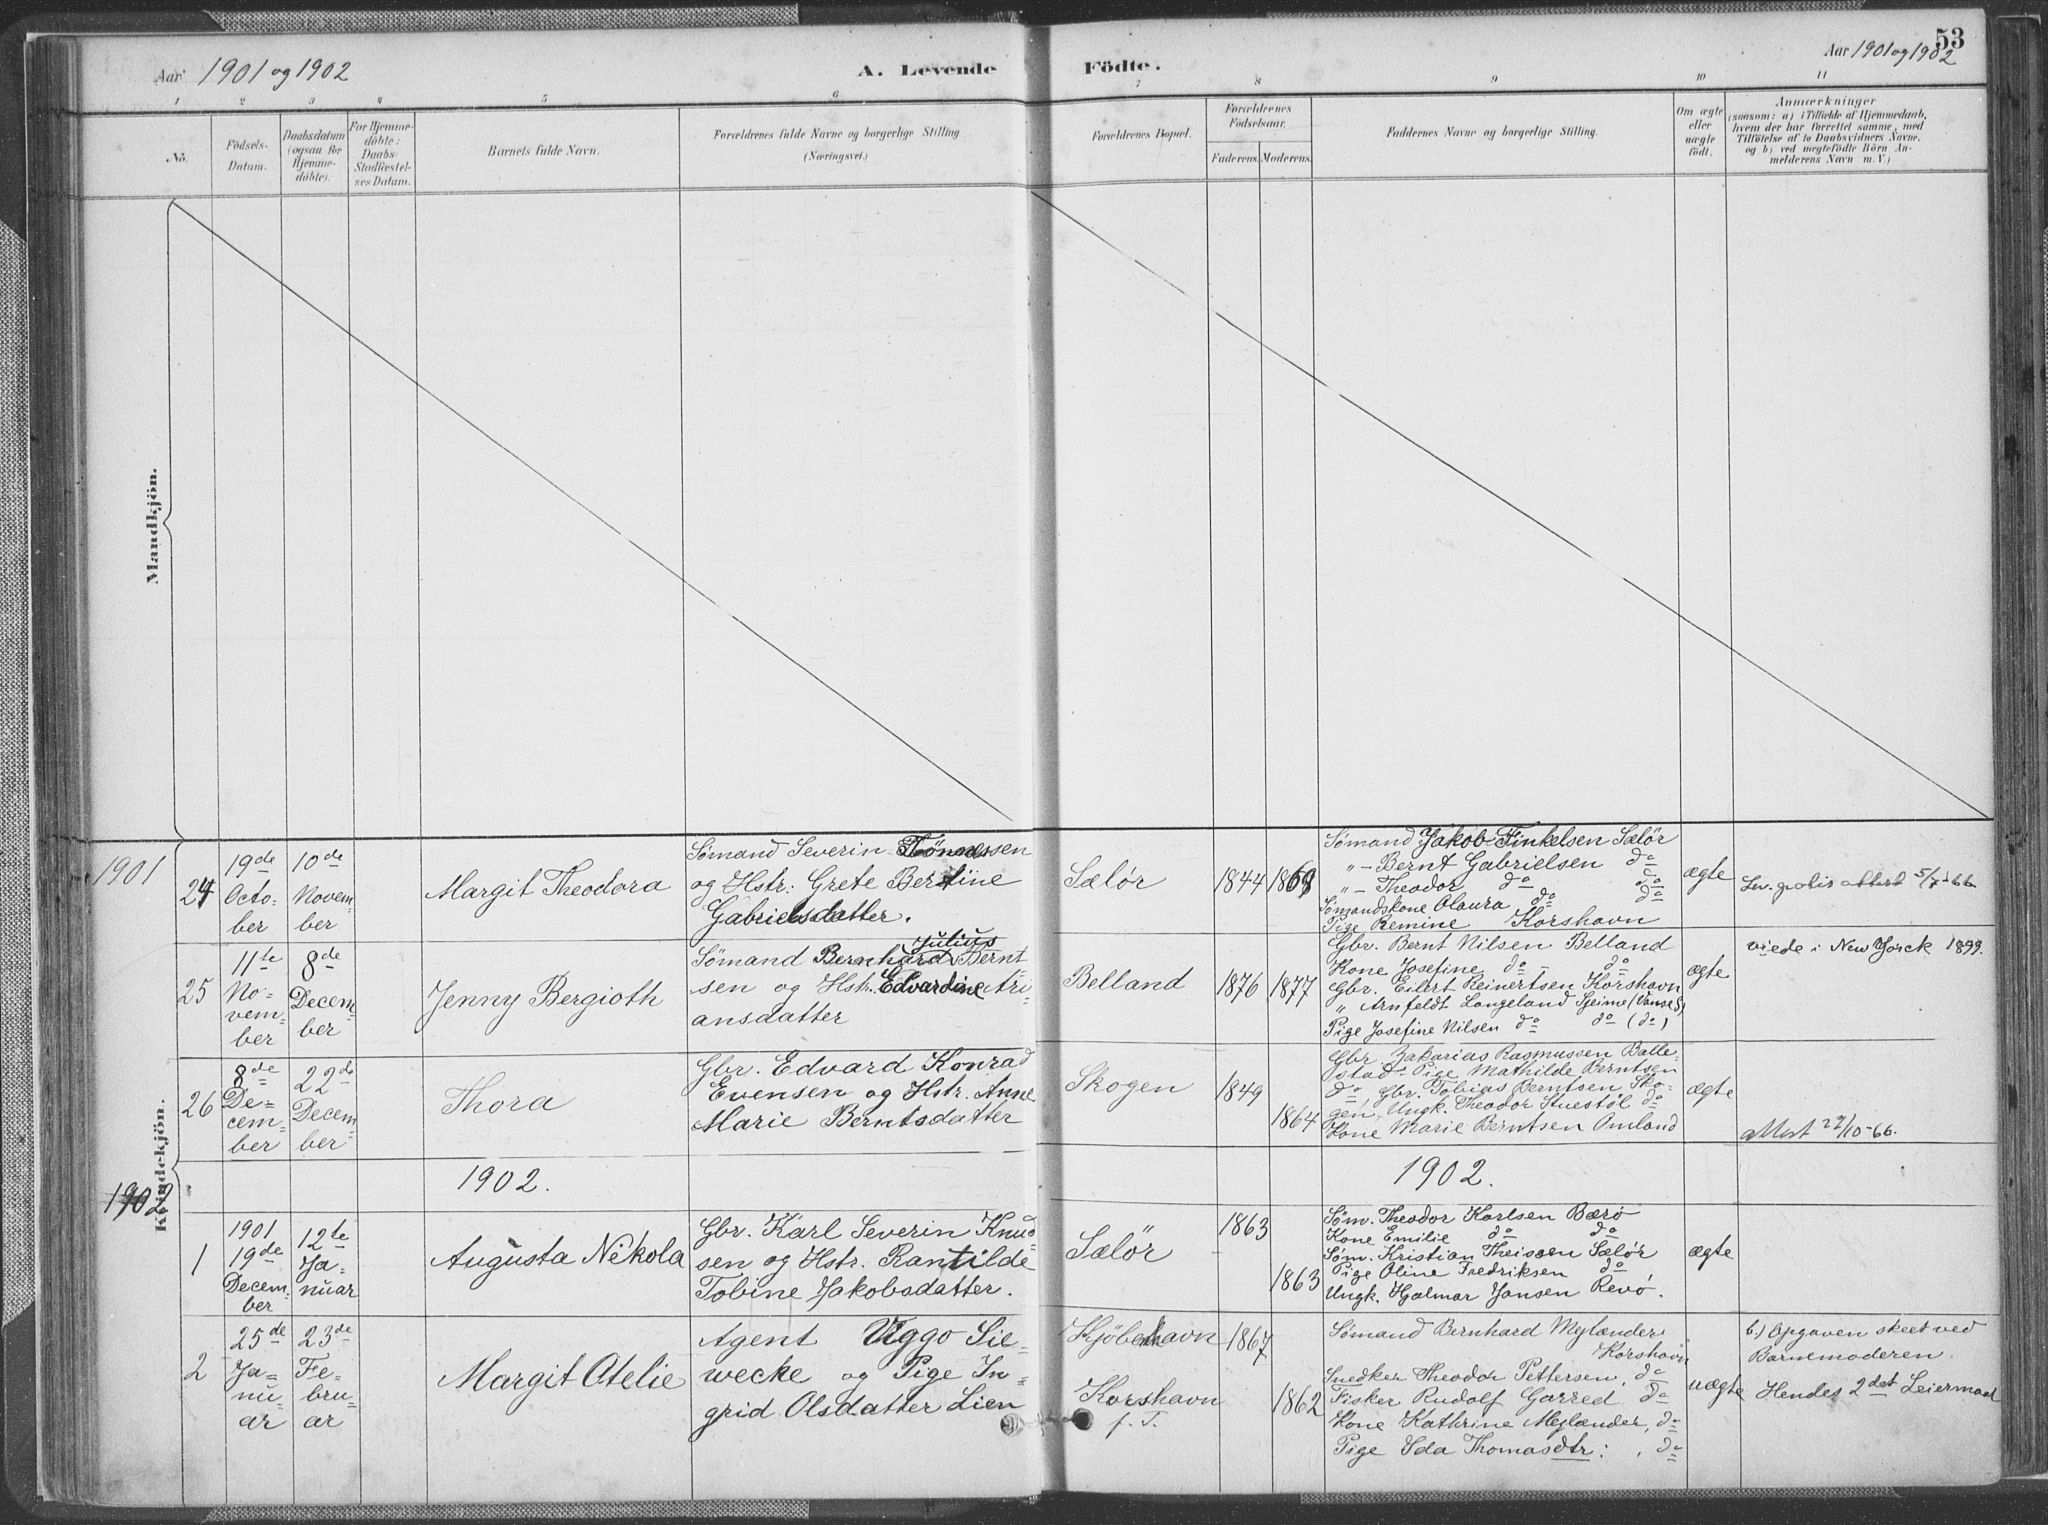 Aar 1901 og 1902
A. Levende Födte.
Aar 1901 og 1902
53
1 2 3 4 5 6 7 8 9 10 11
No.
Födsels-Datum.
Daabsdatum (ogsaa for Hjemme-döbte).
For Hjemme-döbte: Daabs-Stadfæstel-ses Datum.
Barnets fulde Navn.
Forældrenes fulde Navne og borgerlige Stilling.
(Næringsvei.)
Forældrenes Bopæl.
Forældrenes Fødselsaar.
Faderens. Moderens.
Faddernes Navne og borgerlige Stilling.
Om ægte eller uægte födt.
Anmærkninger
(saasom: a) i Tilfælde af Hjemmedaab, hvem der har forrettet samme, med Tilföielse af to Daabsvidners Navne, og b) ved uægtefödte Börn An-melderens Navn m. V.)
Mandkjön.
Kvindekjön.
1901
24
19de Octo-ber
10de Novem-ber
Margit Theodora
Sømand Severin Tönnessen
og Hstr: Grete Bertine
Gabrielsdatter.
Sælör
1844
1869
Sømand Jakob Finkelsen Sælör
"- Bernt Gabrielsen do
"- Theodor do do
Sømandskone Olaura do do
Pige Remine Korshavn
ægte
Lev. gratis attest 5/7-66
25
11te No-vem-ber
8de Decem-ber
Jenny Bergioth
Julius
Sømand Bernhard Bernt
sen og Hstr. Edvardine Ari-
ansdatter
Belland
1876
1877
Gbr. Bernt Nilsen Belland
Kone Josefine do - do
Gbr. Eilert Reinertsen Korshavn
" Arnfeldt Langeland Gjeime (Vanse s)
Pige Josefine Nilsen do do (do)
ægte
viede i New Yorck 1899.
26
8de De-cem-ber
22de Decem-ber
Thora
Gbr. Edvard Konrad
Evensen og Hstr. Anne
Marie Berntsdatter
Skogen
1849
1864
Gbr. Zakarias Rasmussen Balle-
stad Pige Mathilde Berntsen
do Gbr. Tobias Berntsen Sko-
gen, Ungk. Theodor Stuestöl do
Kone Marie Berntsen Omland
ægte
attest 27/10-66.
1902.
1902.
1902
1
1901
19de Decem-ber
12te Ja-nuar
Augusta Nikola
Gbr. Karl Severin Knud-
sen og Hstr. Rantilde
Tobine Jakobsdatter.
Sælör
1863
1863
Søm. Theodor Karlsen Bærö
Kone Emilie do do
Søm. Kristian Theisen Sælör
Pige Oline Fredriksen do
Ungk. Hjalmar Jansen Revö.
ægte
2
25de Ja-nu-ar
23de Fe-bru-ar
Margit Otelie
Agent Viggo Sie-
wecke og Pige In-
grid Olsdatter Lien
Kjöbenhavn
Korshavn
f. T.
1867
1862
Sømand Bernhard Meglænder
Korshavn
Snedker Theodor Pettersen, do
Fisker Rudolf Garred do
Kone Kathrine Meglænder, do
Pige Ida Thomasdtr: , do
uægte
b.) Opgaven skeet ved
Barnemoderen.
Hendes 2det Leiermaal